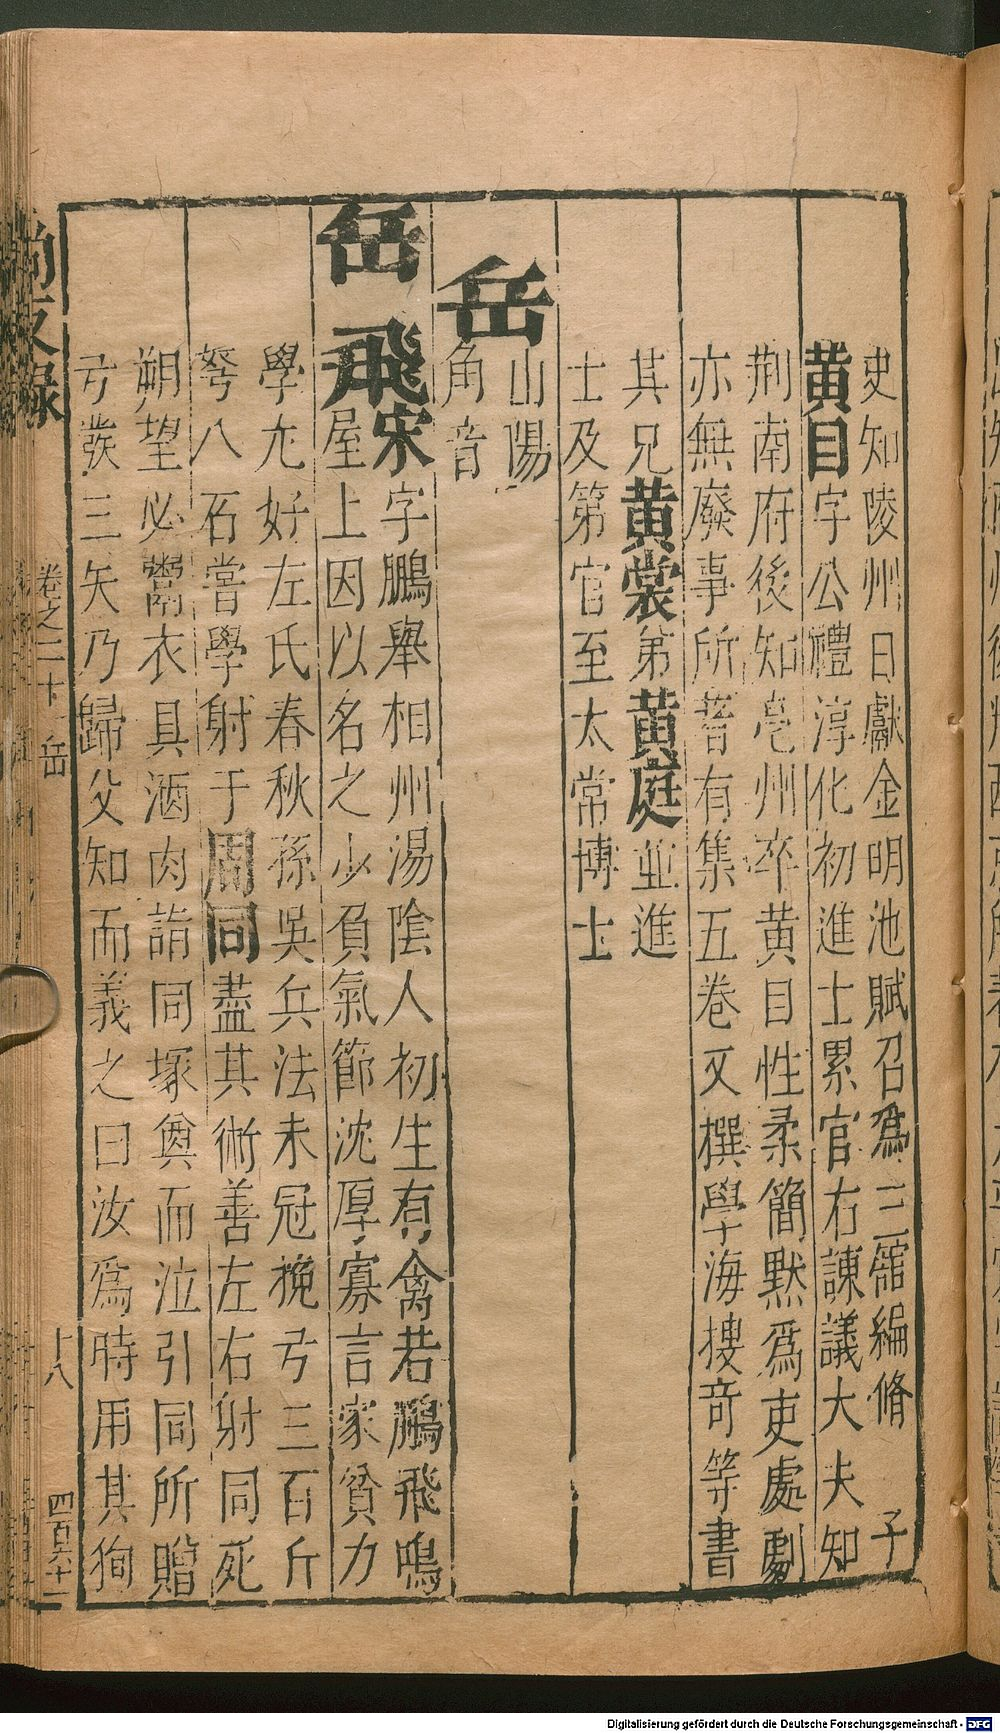 史知陵州日獻金明池賦召爲三舘編脩 子
黄目字公禮淳化初進士累官右諫議大夫知
荆南府後知亳州卒黄目性柔簡黙爲吏處劇
亦無廢事所著有集五卷又撰學海搜奇等書
其兄黄裳第黄庭並進
士及第官至太常博士
山陽
岳角音
岳飛宋字鵬舉相州湯陰人初生有禽若鵬飛鳴
屋上因以名之少負氣節沈厚寡言家貧力
學尤好左氏春秋孫吳兵法未冠挽弓三百斤
弩八石嘗學射于周同盡其術善左右射同死
朔望必鬻衣具酒肉詣同塚奠而泣引同所贈
弓發三矢乃歸父知而義之曰汝爲時用其狥
尚友録
卷之二十一 岳
十八
四百六十一
Digitalisierung gefördert durch die Deutsche Forschungsgemeinschaft - DFG